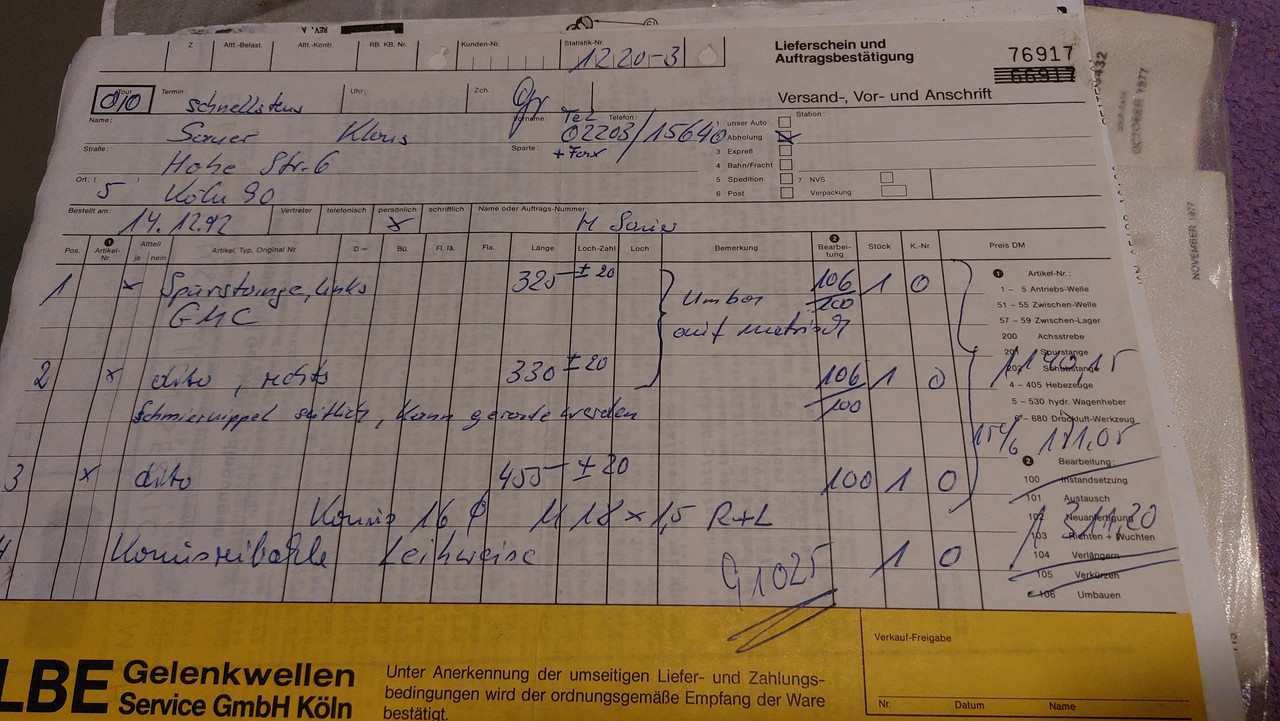 REV. A
Z Altt.-Belast. Altt.-Kontr. RB. KB. Nr. Kunden-Nr. Statistik-Nr. 1220-3
Lieferschein und
Auftragsbestätigung
76917
66917
Tour Termin: schnellstens Uhr: Zch.: Gr
Versand-, Vor- und Anschrift
Name: Vorname: Tel Telefon:
Sauer Klaus 02203/15640
Straße: Sparte + Fax
Hohe Str. 6
Ort: (
5 Köln 90
1 unser Auto Station:
2 Abholung x
3 Expreß
4 Bahn/Fracht
5 Spedition 7 NVS
6 Post Verpackung
Bestellt am: 14.12.92 Vertreter telefonisch persönlich x schriftlich Name oder Auftrags-Nummer H Sauer
Pos. Artikel-Nr. Altteil ja nein Artikel, Typ, Original Nr. D= Bü. Fl. lä. Fla. Länge Loch-Zahl Loch Bemerkung Bearbeitung Stück K.-Nr. Preis DM
1 x Spurstange, links 325 ± 20 106/100 1 0
GMC
Umbau
auf metrisch
2 x dito, rechts 330 ± 20 106/100 1 0
Schmiernippel seitlich, kann gerade werden
3 x dito 455 ± 20 100 1 0
Konus 16 ∅ M 18 x 1,5 R+L
4 Konusreibahle Leihweise 1 0
G1025
1140,15
15% 171,05
1311,20
1 Artikel-Nr.:
1 – 5 Antriebs-Welle
51 – 55 Zwischen-Welle
57 – 59 Zwischen-Lager
200 Achsstrebe
201 Spurstange
202 Schubstange
4 – 405 Hebezeuge
5 – 530 hydr. Wagenheber
6 – 680 Druckluft-Werkzeug
2 Bearbeitung:
100 Instandsetzung
101 Austausch
102 Neuanfertigung
103 Richten + Wuchten
104 Verlängern
105 Verkürzen
106 Umbauen
LBE Gelenkwellen
Service GmbH Köln
Unter Anerkennung der umseitigen Liefer- und Zahlungs-
bedingungen wird der ordnungsgemäße Empfang der Ware
bestätigt.
Verkauf-Freigabe
Nr. Datum Name
OCTOBER 1977
NOVEMBER 1977